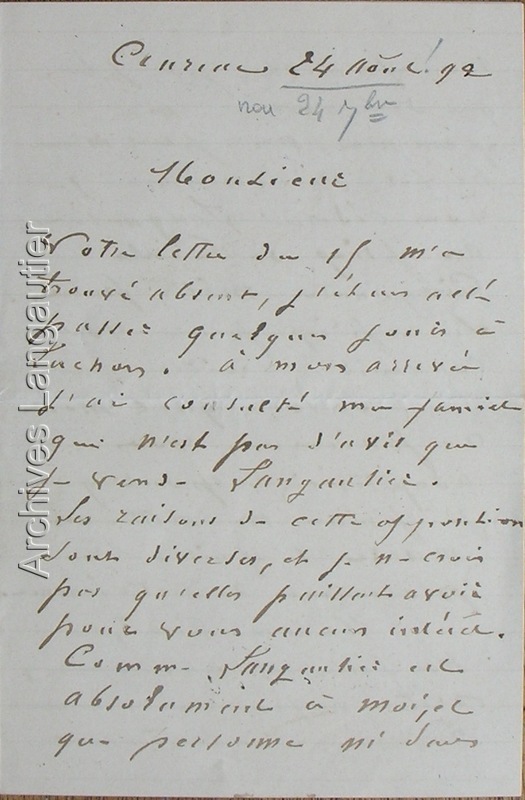 24 Août 92
non 24 7bre
Monsieur
Votre lettre du 15 m'a
trouvé absent, j'étais allé
passer quelques jours à
à mon arrivée
j'ai consulté ma famille
qui n'est pas d'avis que
je vende Langautier.
Les raisons de cette opposition
sont diverses, et je ne crois
pas qu'elles puissent avoir
pour vous aucun intérêt.
Comme Langautier est
absolument à moi, et
que personne ni dans
Archives Langautier